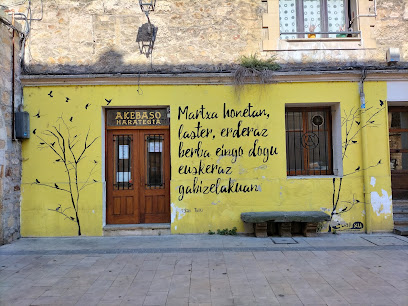 AKEBASO
HARATEGIA
Martxa honetan,
laster, erderaz
berba eingo dogu
euskeraz
gabizelakuan.